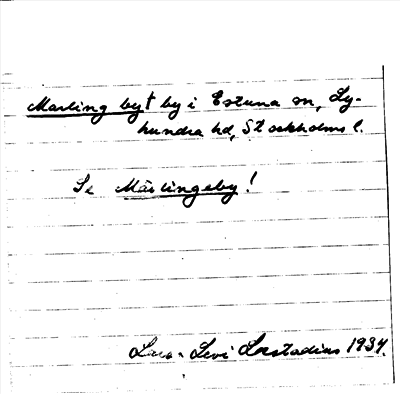 Marling by† by i Estuna sn, Ly-
hundra hd, Stockholms l.
Se Märlingeby!
Lars-Levi Læstadius 1934.